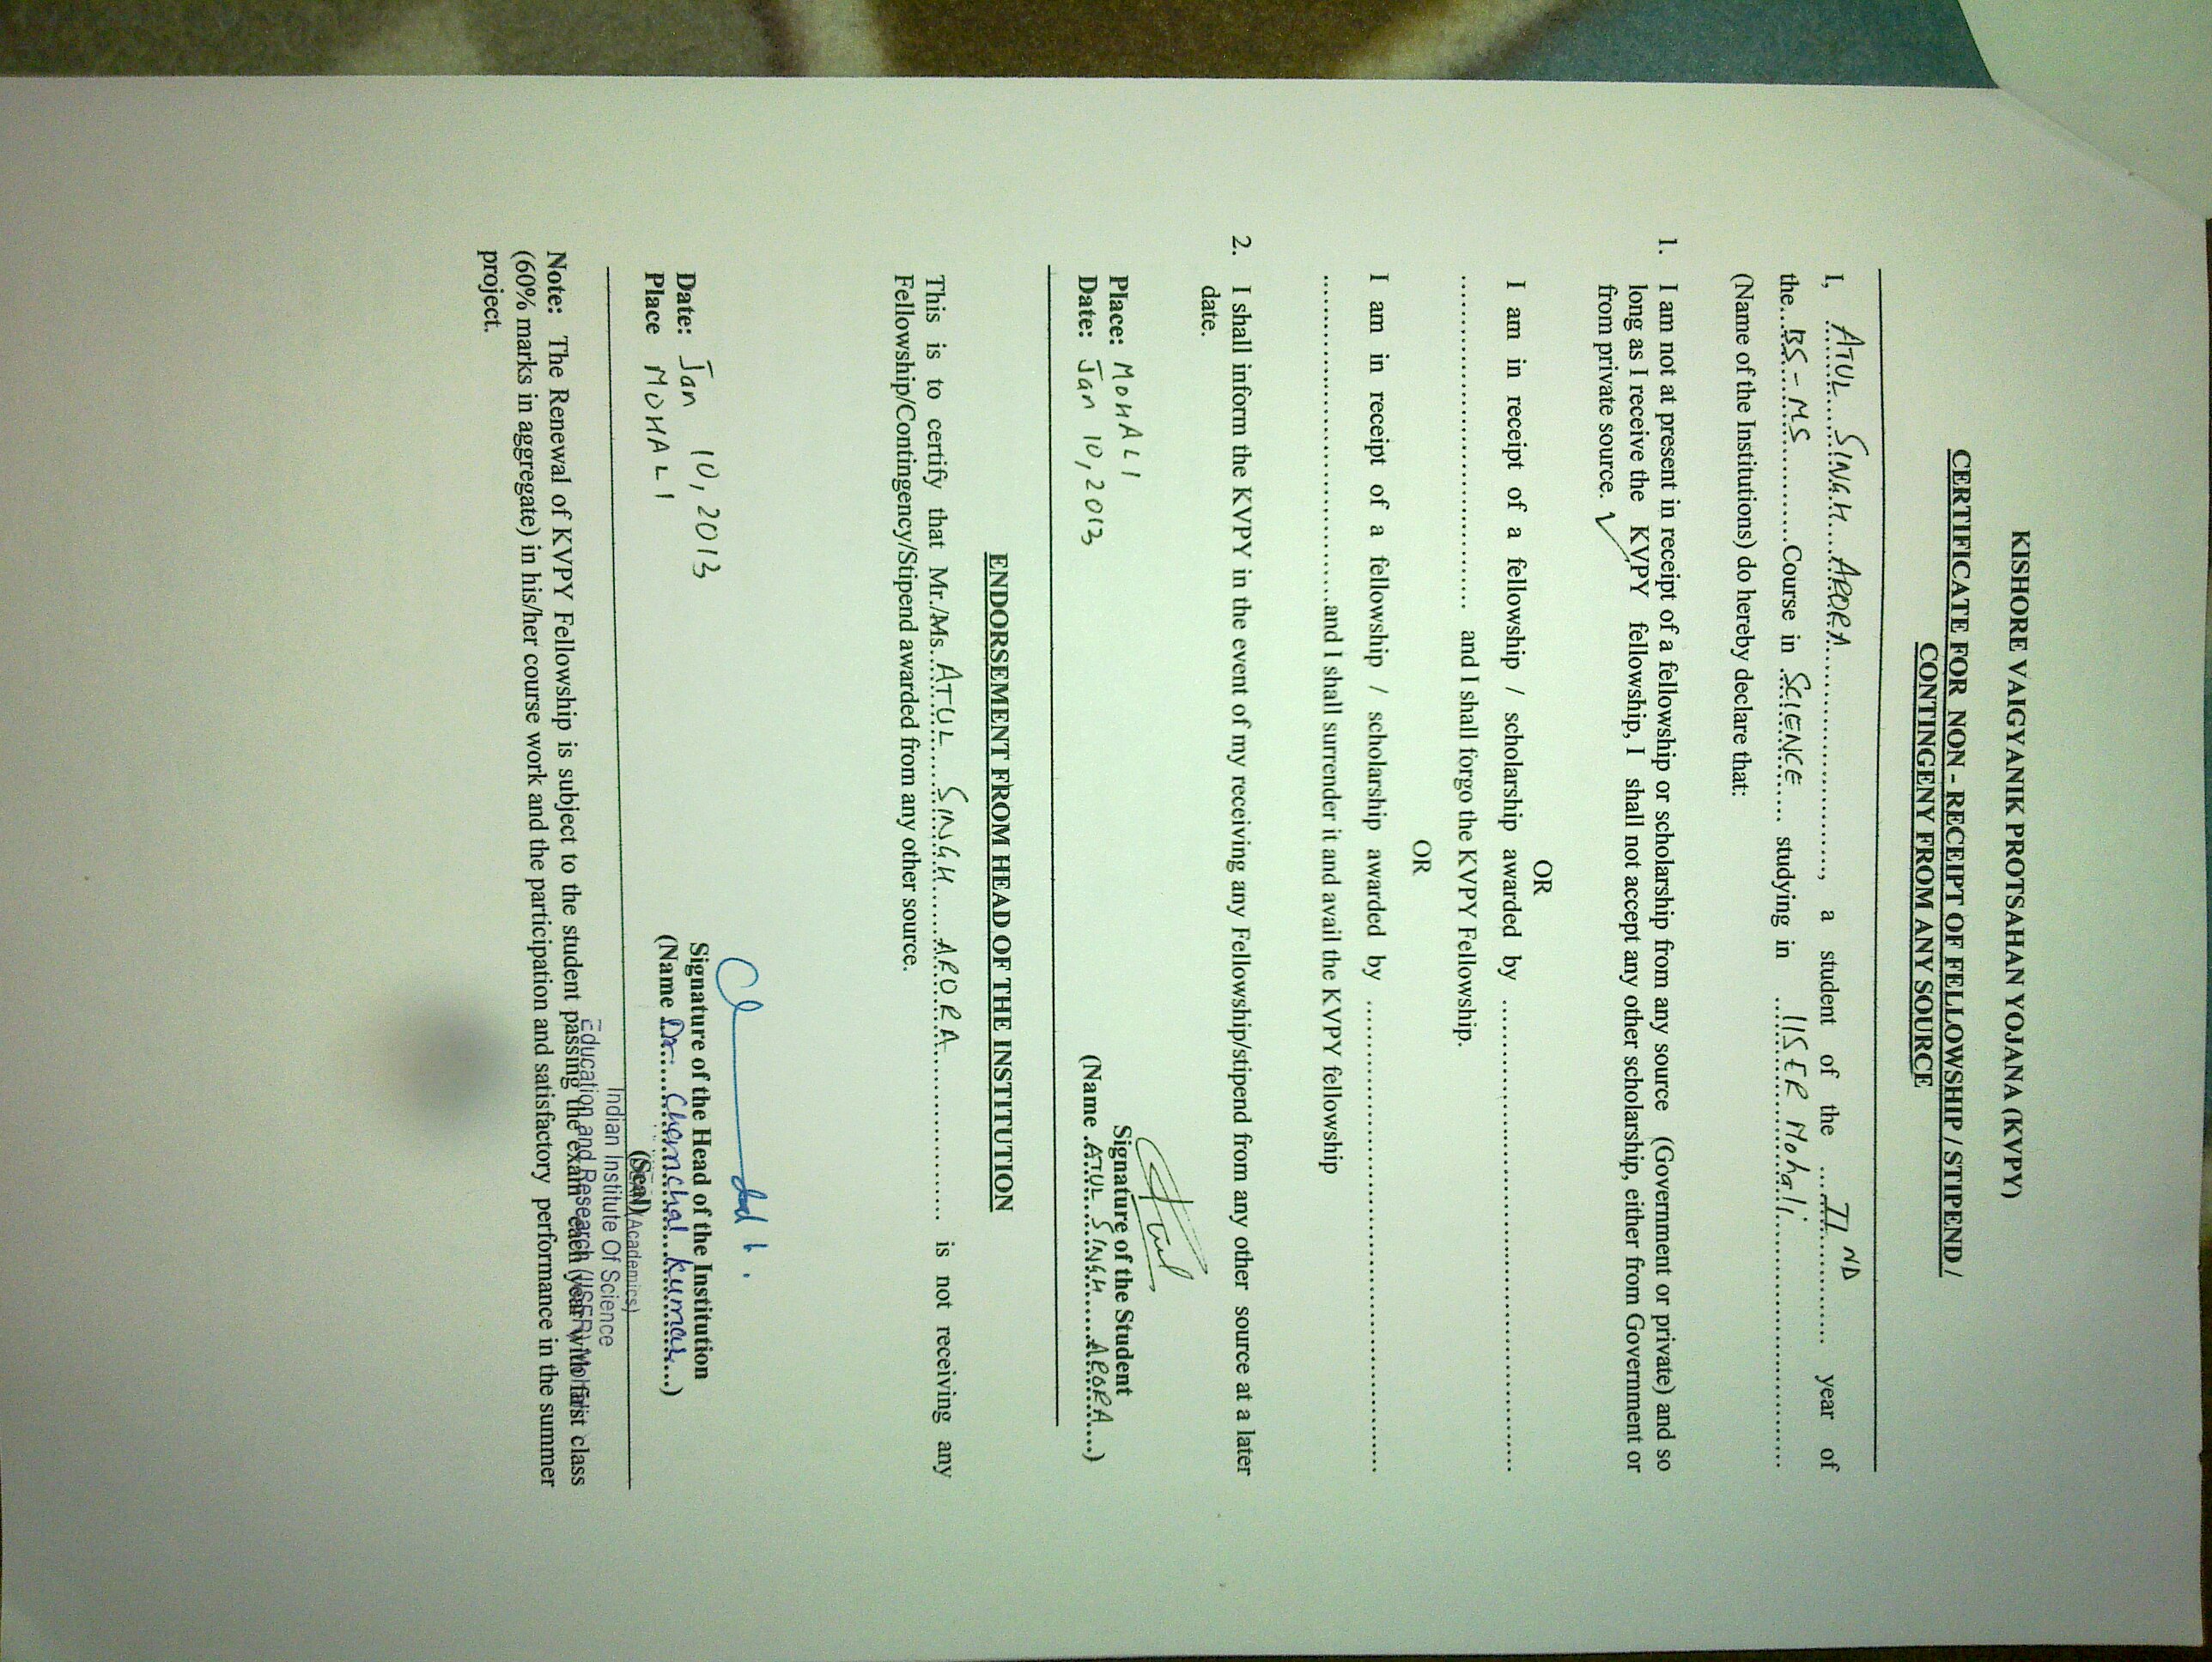 KISHORE VAIGYANIK PROTSAHAN YOJANA (KVPY)
CERTIFICATE FOR NON - RECEIPT OF FELLOWSHIP / STIPEND /
CONTINGENY FROM ANY SOURCE
I, ...ATUL SINGH ARORA..................., a student of the ...II ND............ year of
the...BS-MS............Course in .SCIENCE..... studying in ...IISER Mohali..............................
(Name of the Institutions) do hereby declare that:
1. I am not at present in receipt of a fellowship or scholarship from any source (Government or private) and so
long as I receive the KVPY fellowship, I shall not accept any other scholarship, either from Government or
from private source. ✓
OR
I am in receipt of a fellowship / scholarship awarded by ..................................................................
............................................. and I shall forgo the KVPY Fellowship.
OR
I am in receipt of a fellowship / scholarship awarded by ..................................................................
.............................................and I shall surrender it and avail the KVPY fellowship
2. I shall inform the KVPY in the event of my receiving any Fellowship/stipend from any other source at a later
date.
Signature of the Student
Place: MOHALI
Date: Jan 10, 2013 (Name .ATUL SINGH ARORA....)
ENDORSEMENT FROM HEAD OF THE INSTITUTION
This is to certify that Mr./Ms...ATUL SINGH ARORA................... is not receiving any
Fellowship/Contingency/Stipend awarded from any other source.
Date: Jan 10, 2013 Signature of the Head of the Institution
Place MOHALI (Name Dr. Chanchal Kumar....)
(Seal)
(Academics)
Indian Institute Of Science
Education and Research (IISER) Mohali
Note: The Renewal of KVPY Fellowship is subject to the student passing the exam each year with first class
(60% marks in aggregate) in his/her course work and the participation and satisfactory performance in the summer
project.